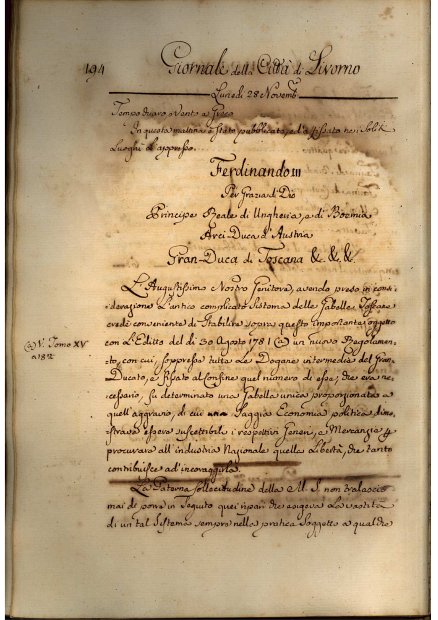 194
Giornale della Città di Livorno
Lunedì 28 Novemb.
Tempo chiaro e Vento a Greco
In questa mattina è stato pubblicato, ed affissato ne' Soliti
Luoghi l'appresso
Ferdinando III
Per Grazia di Dio
Principe Reale di Ungheria, e di Boemia
Arci-Duca d'Austria
Gran-Duca di Toscana &. &. &.
L'Augustissimo Nostro Genitore, avendo preso in consi-
derazione l'antico complicato Sistema delle Gabelle Toscane
credè conveniente di Stabilire sopra questo importante oggetto
con L'Editto del dì 30 Agosto 1781 (a) un nuovo Regolamen-
to, con cui, soppresse tutte le Dogane intermedie del Gran-
Ducato, e fissato al Confine quel numero di esse, che era ne-
cessario, fu determinato una Gabella unica proporzionata a
quell'aggravio, di cui una Saggia Economia politica dimo-
strava essere suscettibili i respettivi Generi, e Mercanzie, e
procurava all'industria Nazionale quella Libertà, che tanto
contribuisce ad'incoraggirla.
La Paterna sollecitudine della M. S. non tralasciò
mai di porre in Seguito quei ripari che esigeva la vastità
di un tal Sistema sempre nella pratica Soggetto a qualche
(a) V. Tomo XV
a 182